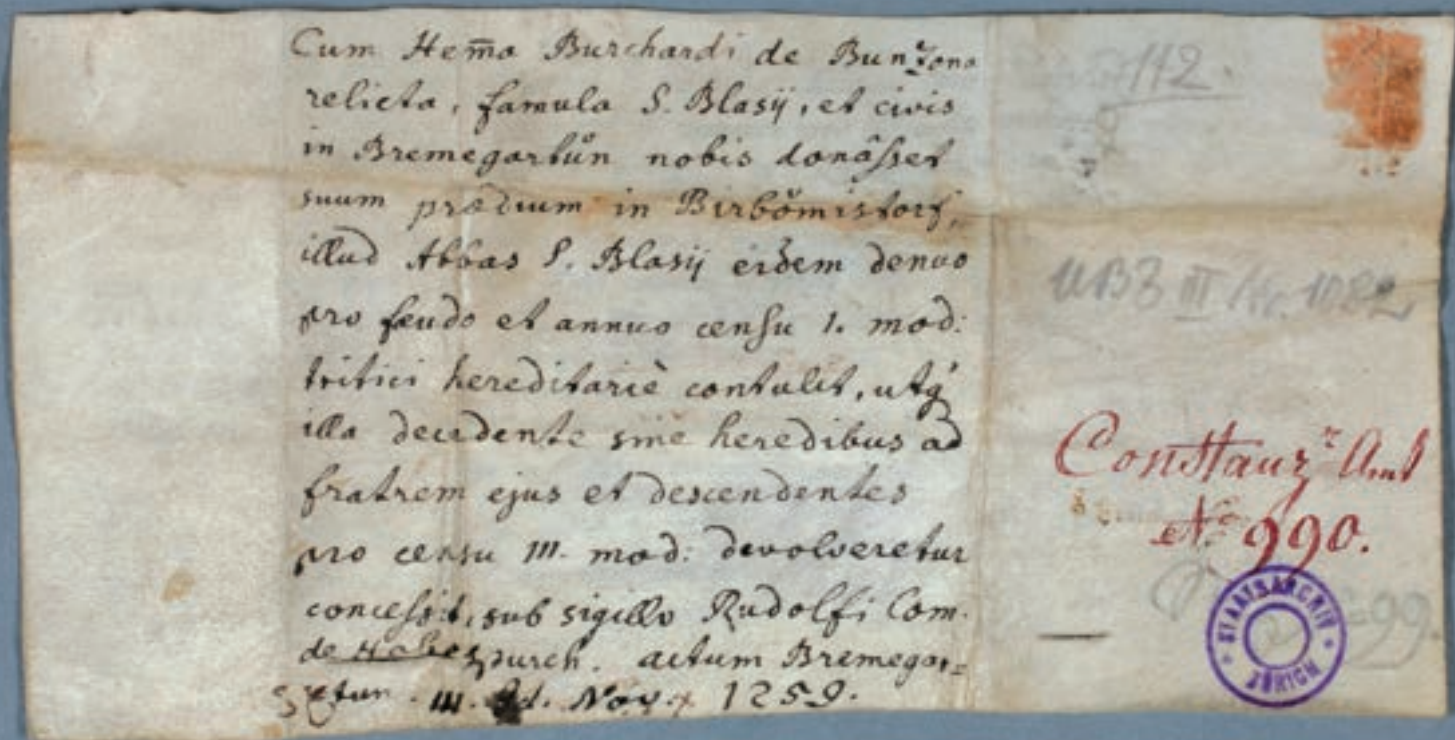 Cum Hem̄a Burchardi de Bunzona
relicta, famula S. Blasij, et civis
in Bremegartůn nobis donâsset
suum prædium in Birbŏmistorf,
illud Abbas S. Blasij eidem denuo
pro feudo et annuo censu 1. mod:
tritici hereditariè contulit, utq́
illa decedente sine heredibus ad
fratrem ejus et descendentes
pro censu III. mod: devolveretur
concessit, sub sigillo Rudolfi Com.
de Habespurch. actum Bremegar=
tun. III. Id. Nov. 1259.
112.
UBZ III Nr. 1082
Constanz Amt
No 990.
STAATSARCHIV ZÜRICH